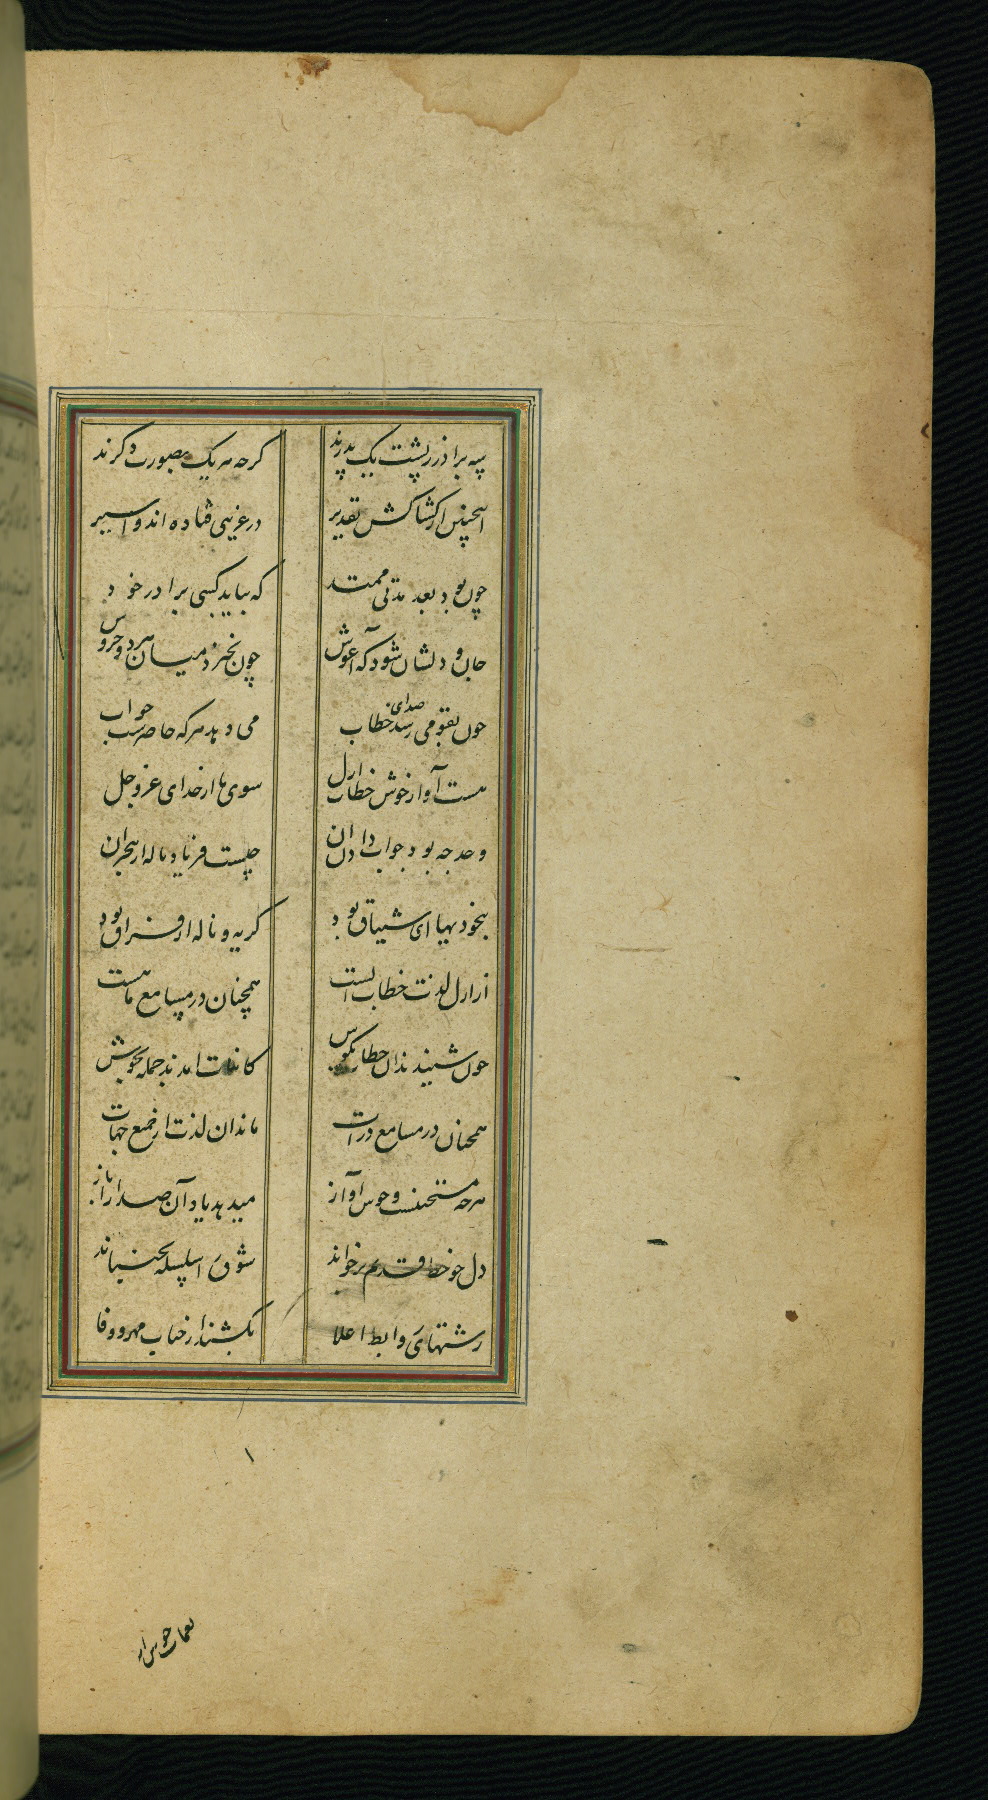 سه برادر ز پشت یک پدرند گرچه هریک بصورت دگرند
اینچنین از کشاکش تقدیر در غریبی فتاده اند و اسیر
چون بود بعد مدتی ممتد که بیاید کسی برادر خود
جان و دلشان شود که آغوش چون نخیزد میان مرد و خروش
چون بقومی رسد صدای خطاب می دهد هر که حاضرست جواب
هست آواز خوش خطاب ازل سوی ما از خدای عز و جل
وجد چه بود جواب دادن آن چیست فریاد و ناله از هجران
بیخودیهای اشتیاق بود گریه و ناله از فراق بود
از ازل لذت خطاب الست همچنان در مسامع ماهست
چون شنیدند آن خطاب بگوش کاینات آمدند جمله بجوش
همچنان در مسامع ذرات ماند آن لذت از جمیع جهات
هرچه مستحسنست و خوش آواز میدهد یاد آن صدا را باز
دل چو خط قدم برخواند شوق را سلسله بجنباند
رشتهای روابط اعلا بکشند از جناب مهر و وفا
۱
نغمات خوش از